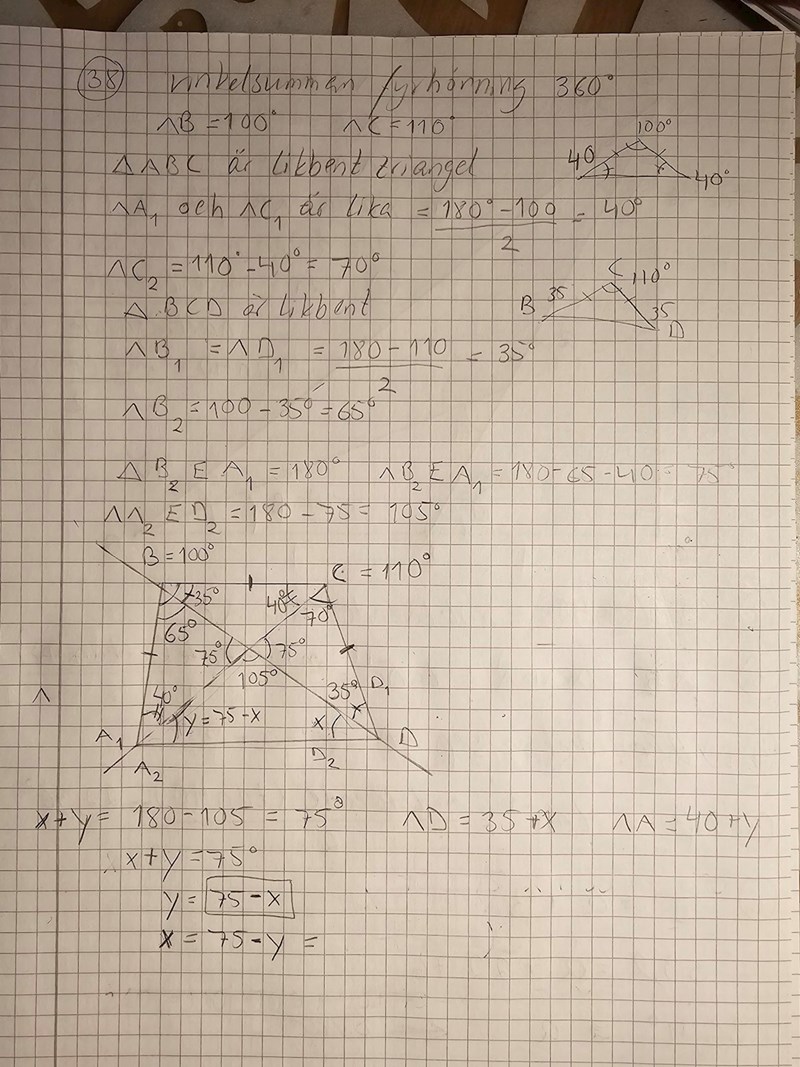 38 vinkelsumman fyrhörning 360°
∧B = 100° ∧C = 110°
100°
△ABC är likbent triangel
40
40°
∧A₁ och ∧C₁ är lika = 180° - 100 / 2 = 40°
∧C₂ = 110° - 40° = 70°
C 110°
△BCD är likbent
B 35
35 D
∧B₁ = ∧D₁ = 180 - 110 / 2 = 35°
∧B₂ = 100 - 35° = 65°
△ B₂ E A₁ = 180° ∧B₂ E A₁ = 180 - 65 - 40 = 75°
∧A₂ E D₂ = 180 - 75 = 105°
B = 100°
C = 110°
x 35° 40° x
65° 70°
75° 75°
105°
40° 35° D₁
∧
x
y = 75 - x x
A₁ D
A₂ D₂
x + y = 180 - 105 = 75° ∧D = 35 + x ∧A = 40 + y
x + y = 75°
y = 75 - x
x = 75 - y =